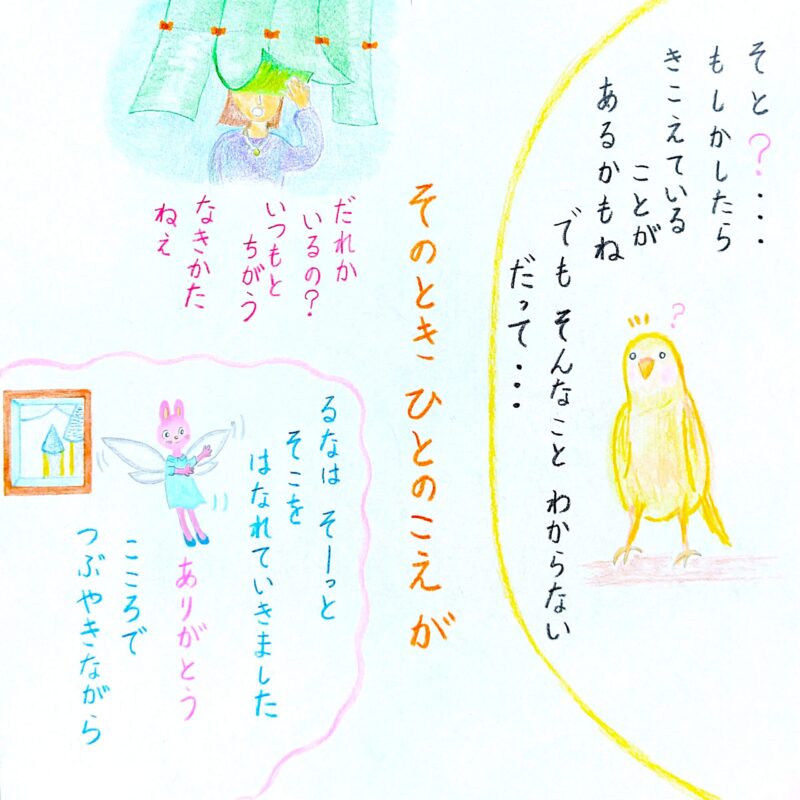 そと?・・・
もしかしたら
きこえている
ことが
あるかもね
でも そんなこと わからない
だって・・・
そのとき ひとのこえが
だれか
いるの?
いつもと
ちがう
なきかた
ねぇ
るなは そーっと
そこを
はなれていきました
ありがとう
こころで
つぶやきながら